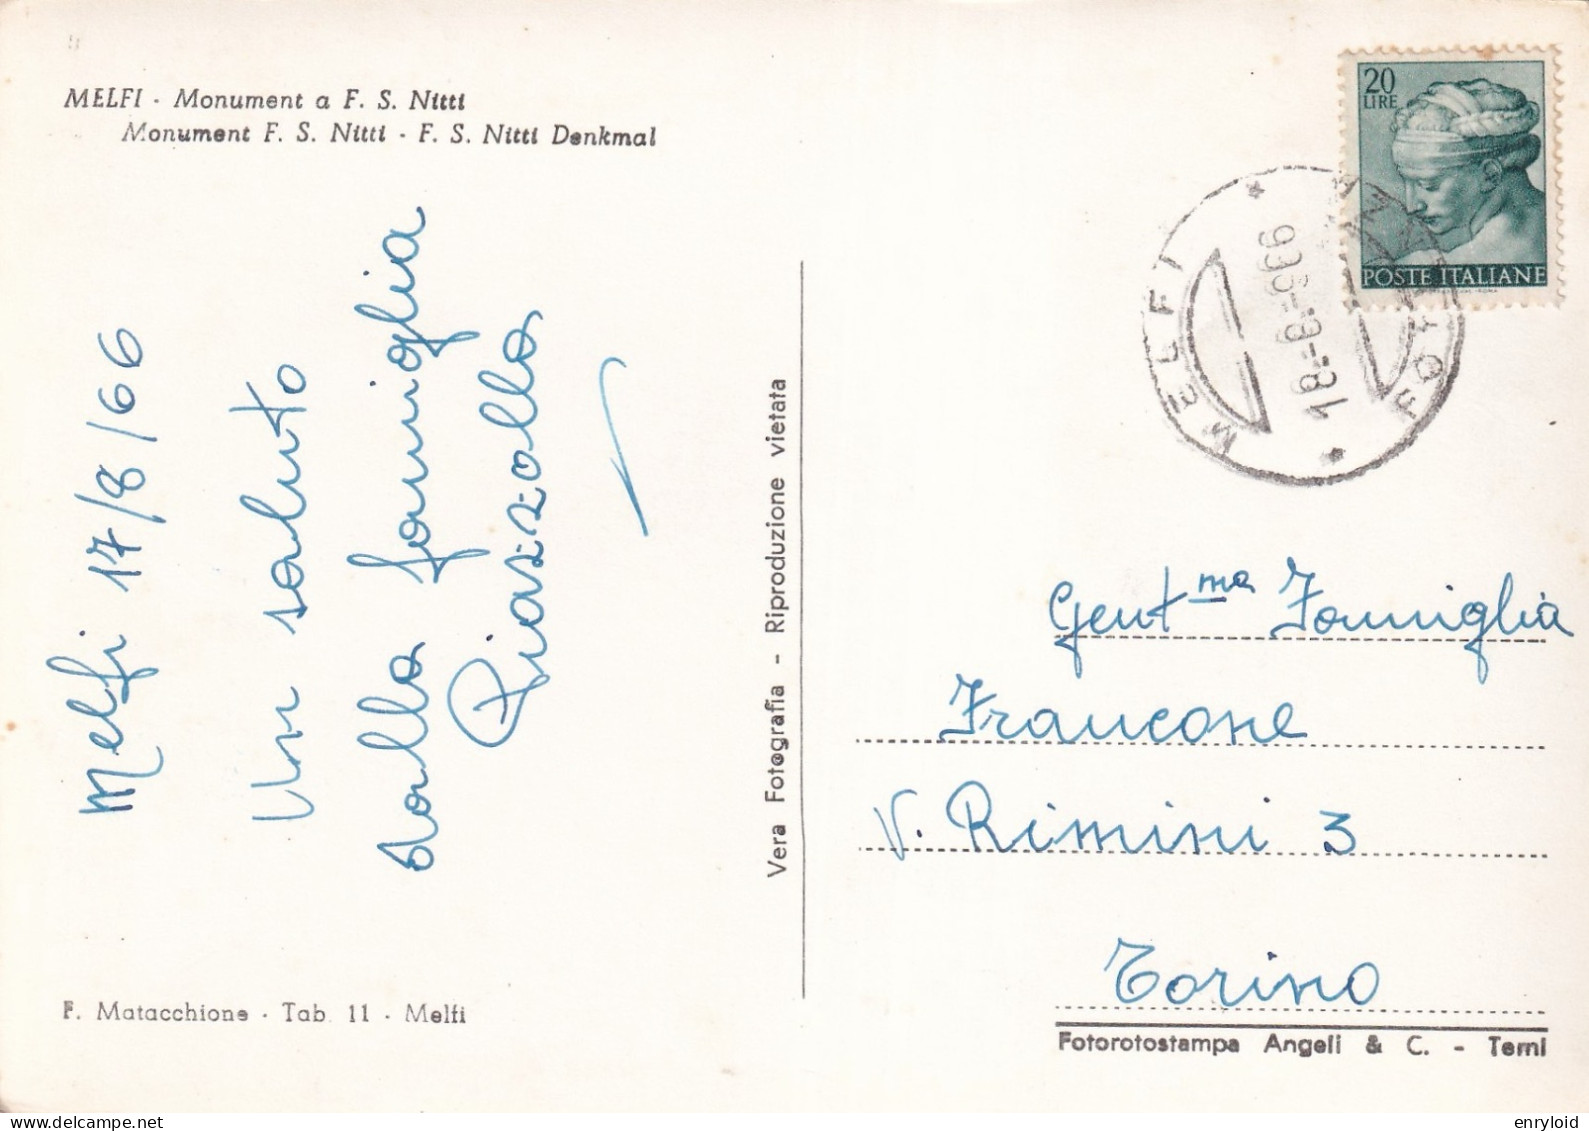 MELFI - Monument a F. S. Nitti
Monument F. S. Nitti - F. S. Nitti Denkmal
Melfi 17/8/66
Un saluto
dalla famiglia
Piazzolla
F. Matacchione - Tab. 11 - Melfi
Vera Fotografia - Riproduzione vietata
20
LIRE
POSTE ITALIANE
MELFI
18-8-966
Gent.ma Famiglia
Francone
V. Rimini 3
Torino
Fotorotostampa Angeli & C. - Terni
enryloid